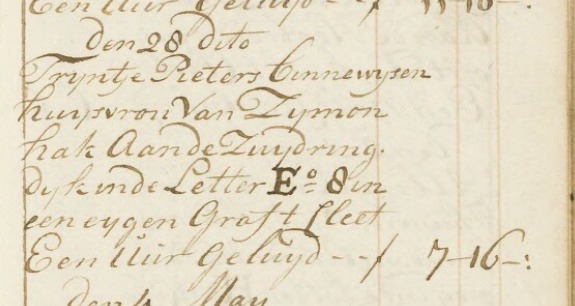 Een Uur Geluyd -- ƒ 11-16-:
den 28 dito
Tryntje Pieters Binnewysen
huysvrou Van Zymon
hak Aan de Zuydring
dyk inde Letter Eo 8 in
een eygen Graft Cleet
Een Uur Geluyd -- ƒ 7-16-:
den 4 May